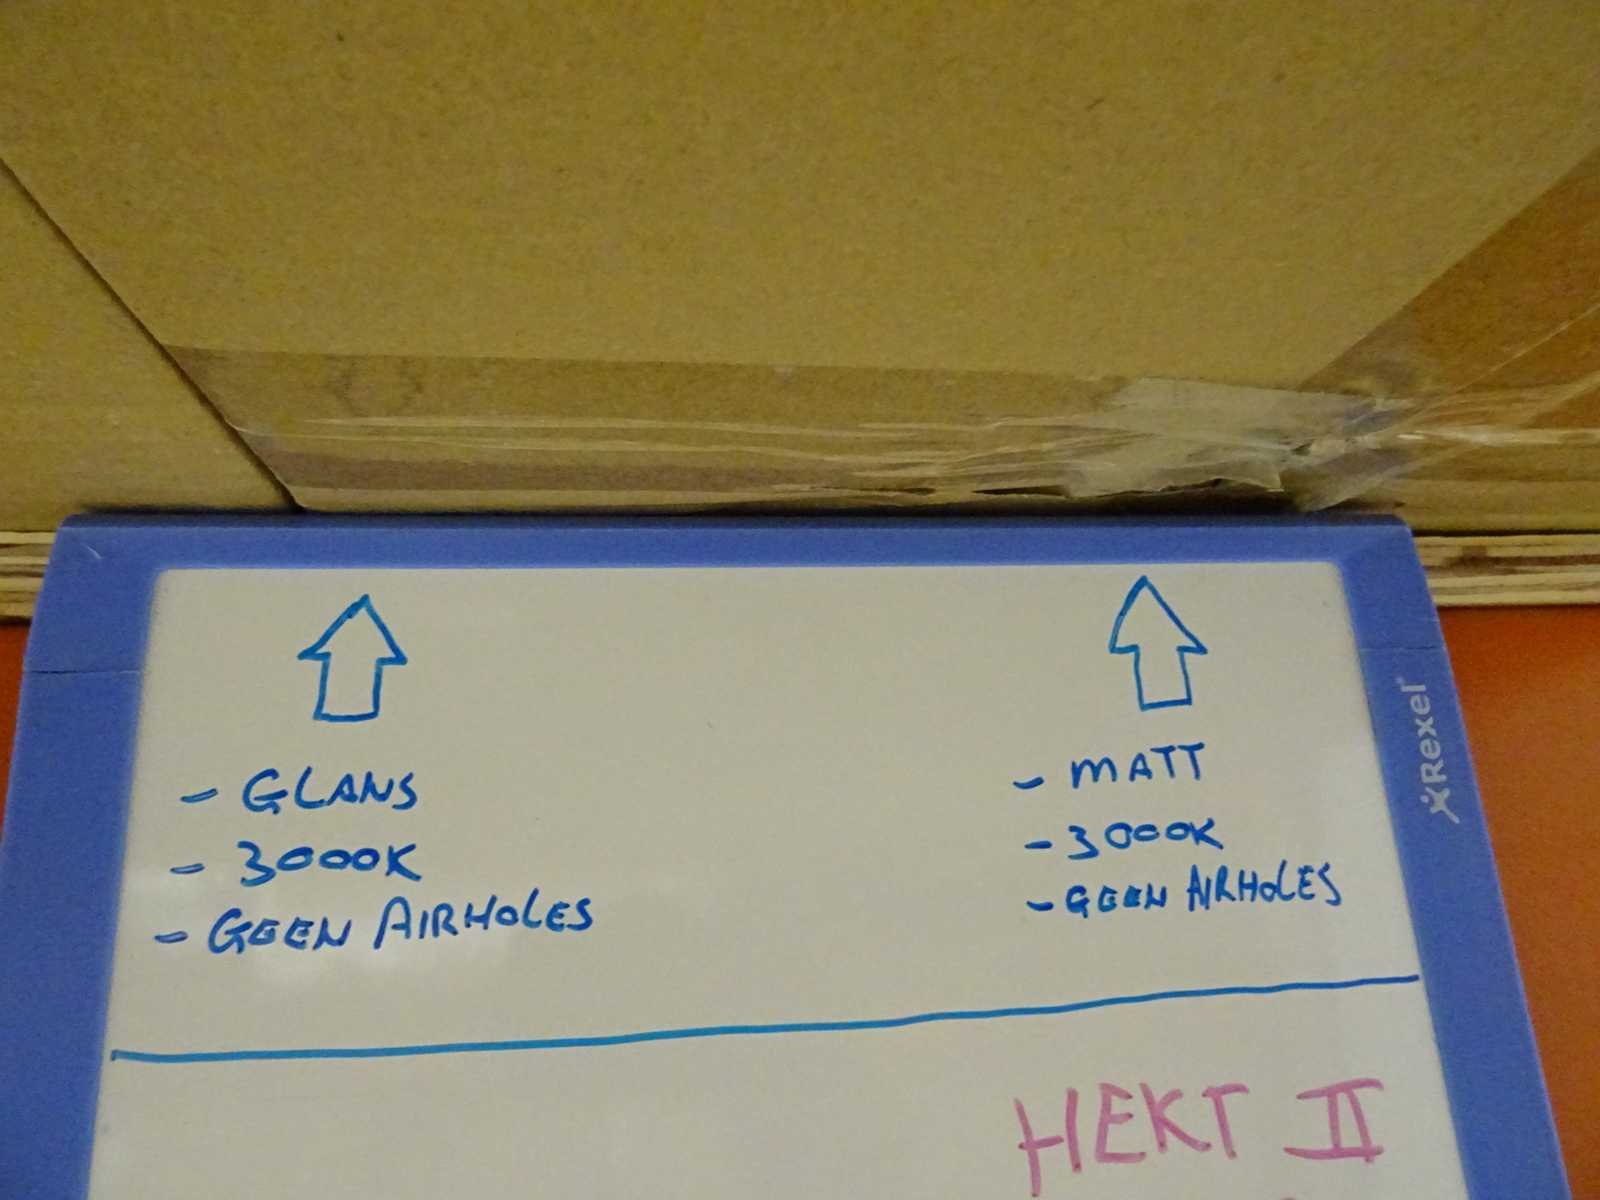 - GLANS
- 3000K
- GEEN AIRHOLES
- MATT
- 3000K
- GEEN AIRHOLES
Rexel
HEKT II